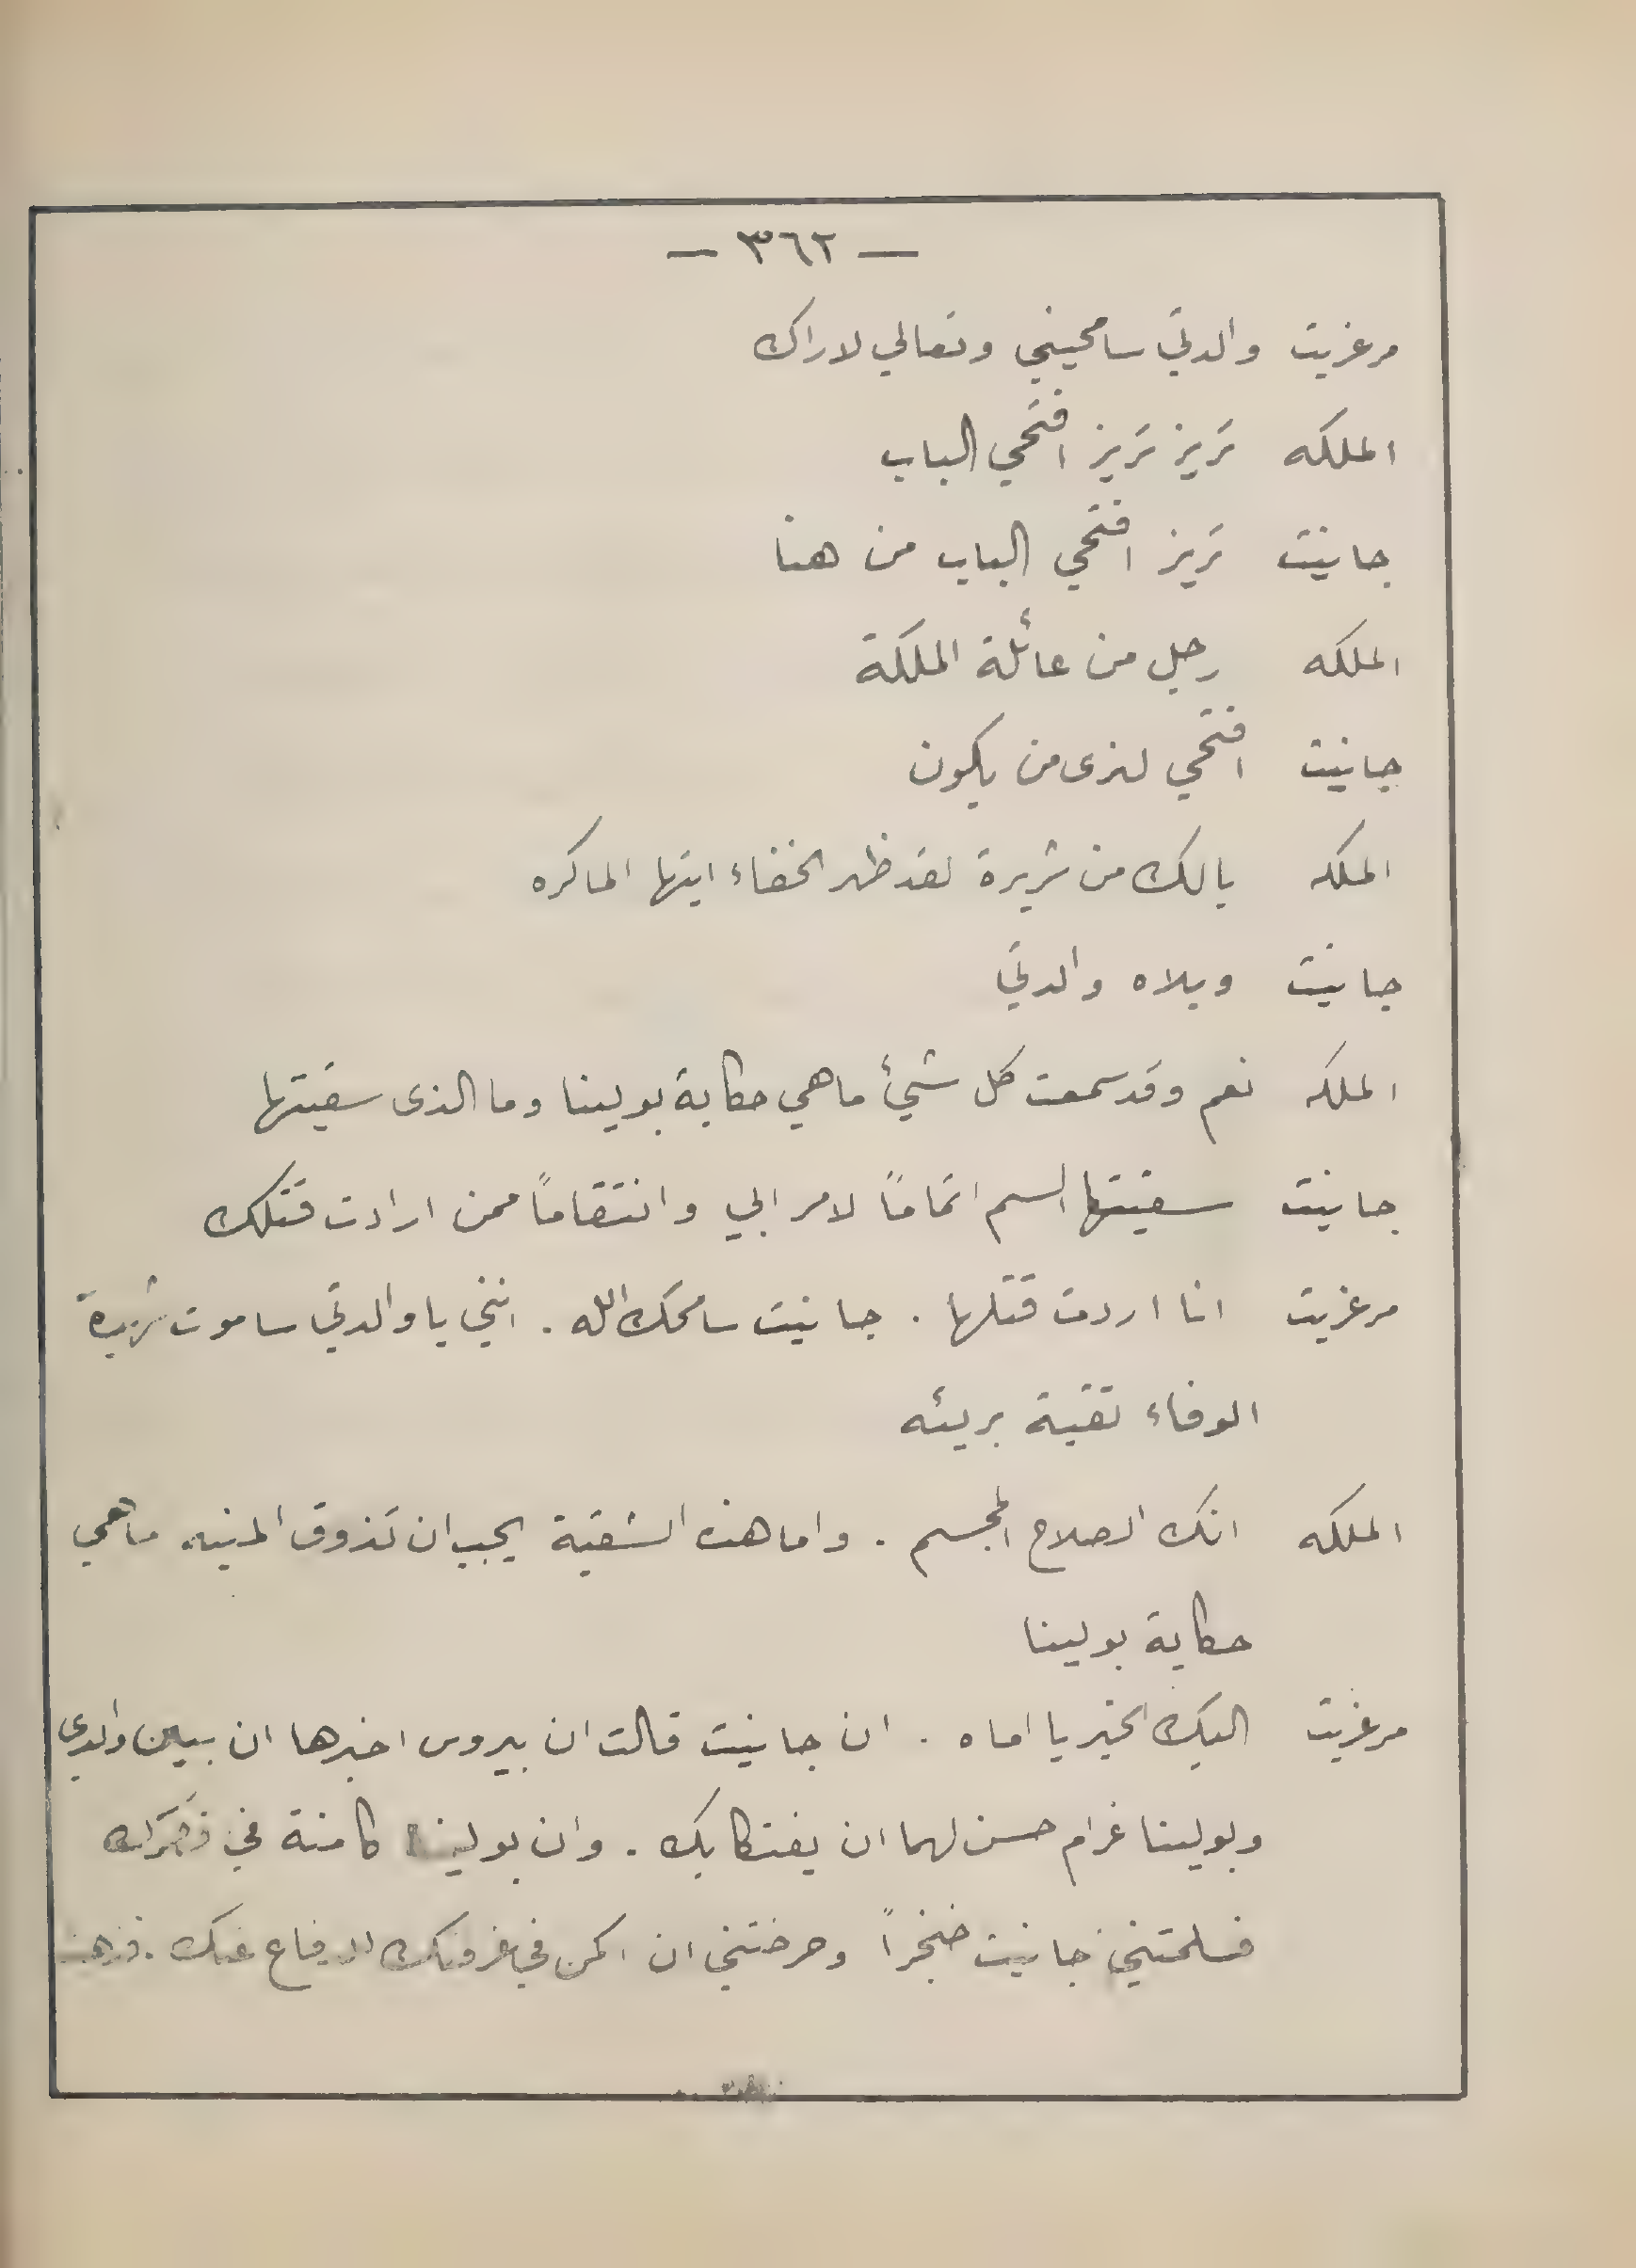 — ٣٦٢ —
مرغريت والدتي سامحيني وتعالي لاراك
الملكه تريز تريز افتحي الباب
جانيت تريز افتحي الباب من هنا
الملكه رجل من عائلة الملكة
جانيت افتحي لنرى من يكون
الملكه يالك من شريرة لقد ظهر الخفاء ايتها الماكره
جانيت ويلاه والدتي
الملكه نعم وقد سمعت كل شيئ ماهي حكاية بولينا وما الذى سقيتها
جانيت سقيتها السم اتماماً لامر ابي وانتقاماً ممن ارادت قتلك
مرغريت انا اردت قتلها . جانيت سامحك الله . انني يا والدتي ساموت شهيدة
الوفاء نقية بريئه
الملكه انك الصلاح المجسم . واما هذه الشقية يجب ان تذوق المنيه ماهي
حكاية بولينا
مرغريت اليك الخبر يا اماه . ان جانيت قالت ان بيروس اخبرها ان بين والدي
وبولينا غرام حسن لهما ان يفتكا بك . وان بولينا كامنة في
فسلمتني جانيت خنجراً وحرضتني ان اكمن في غرفتك للدفاع عنك .